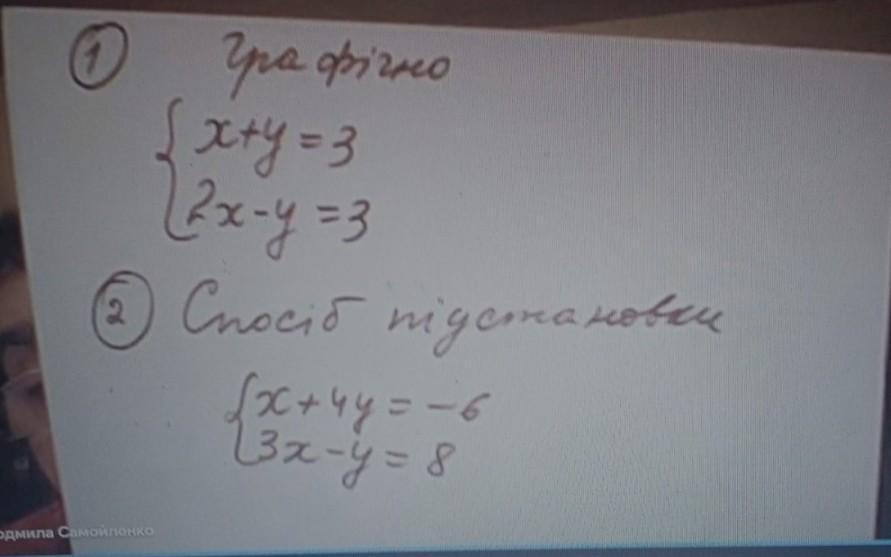 1 Графічно
x+y=3
2x-y=3
2 Спосіб підстановки
x+4y=-6
3x-y=8
юдмила Самойленко